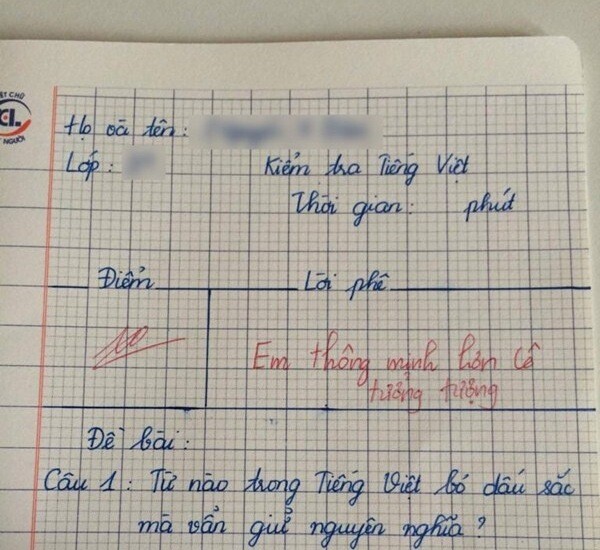 ẾT CHỮ
CL
NGƯỜI
Họ và tên:
Lớp:
Kiểm tra Tiếng Việt
Thời gian: phút
Điểm
Lời phê
10
Em thông minh hơn Cô
tưởng tượng
Đề bài:
Câu 1: Từ nào trong Tiếng Việt bỏ dấu sắc
mà vẫn giữ nguyên nghĩa?